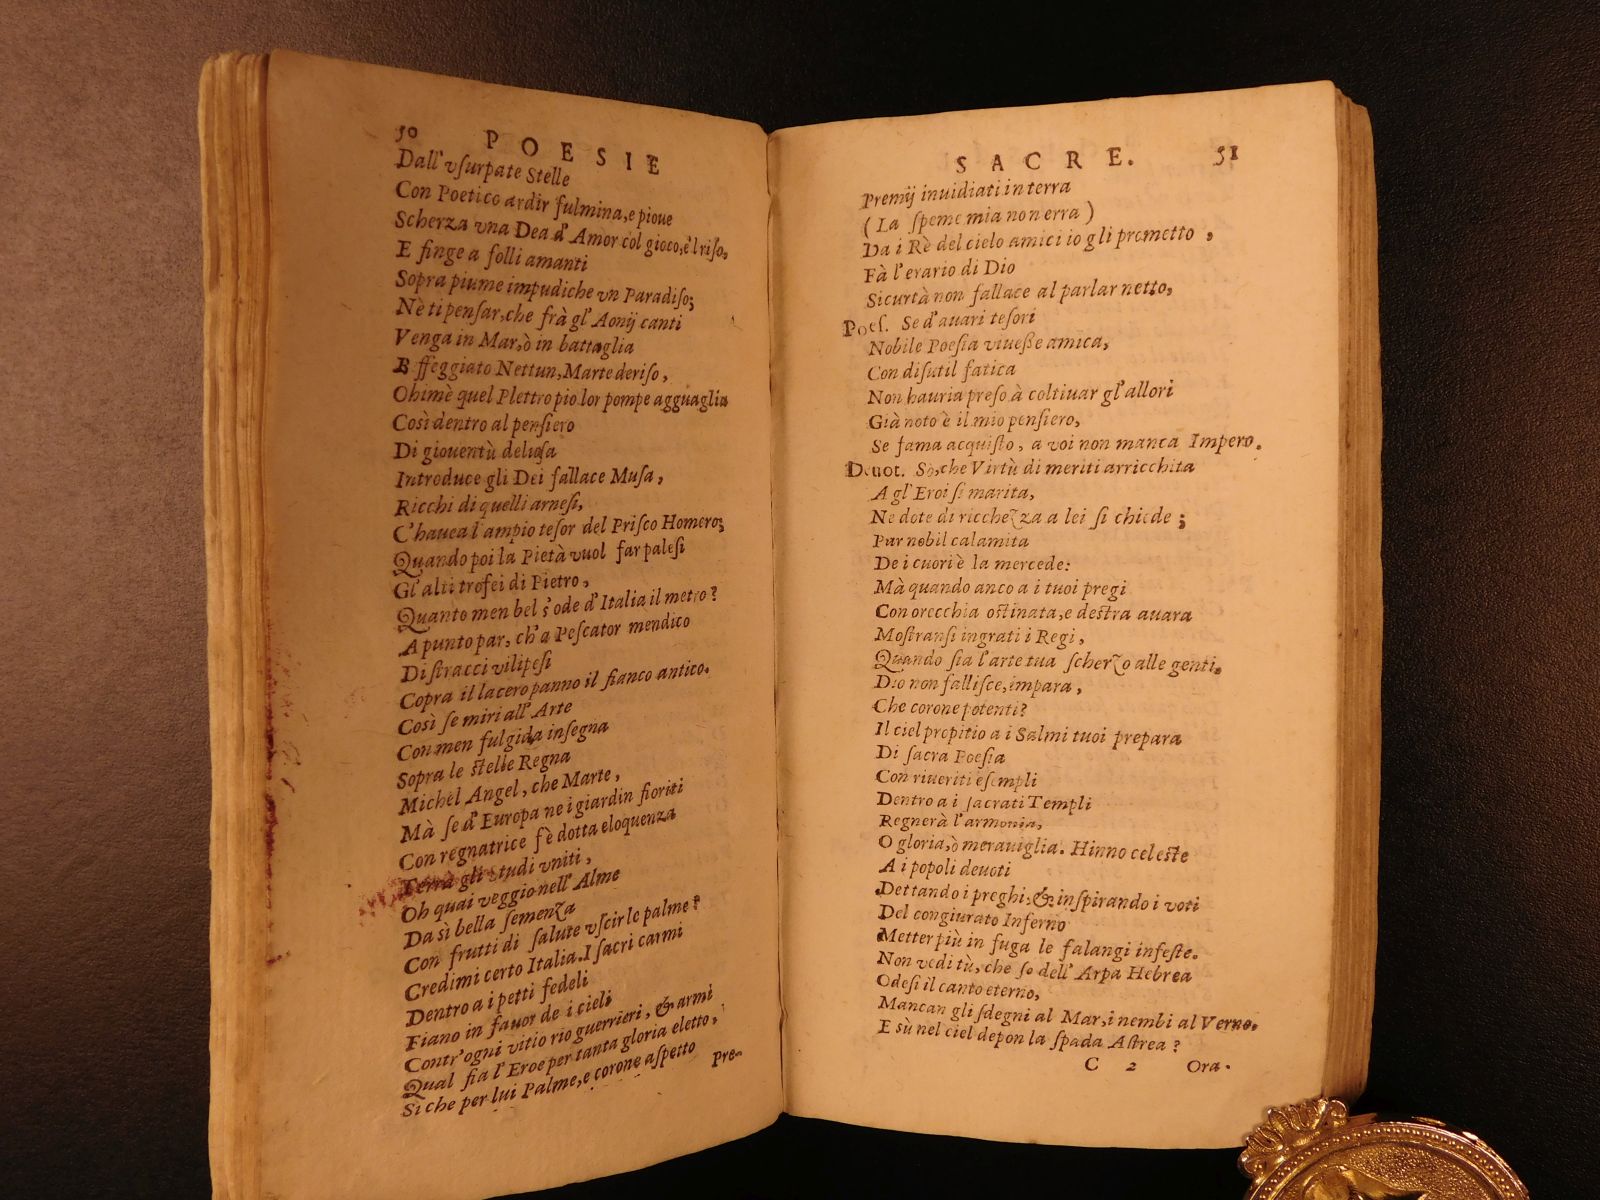 50 POESIE
Dall'vsurpate Stelle
Con Poetico ardir fulmina, e pioue
Scherza vna Dea d'Amor col gioco, e'l riso,
E finge a folli amanti
Sopra piume impudiche vn Paradiso;
Nè ti pensar, che frà gl'Aonij canti
Venga in Mar, ò in battaglia
Beffeggiato Nettun, Marte deriso,
Ohimè quel Plettro pio lor pompe agguaglia
Così dentro al pensiero
Di giouentù delusa
Introduce gli Dei fallace Musa,
Ricchi di quelli arnesi,
C'hauea l'ampio tesor del Prisco Homero;
Quando poi la Pietà vuol far palesi
Gl'alti trofei di Pietro,
Quanto men bel s'ode d'Italia il metro?
A punto par, ch'a Pescator mendico
Di stracci vilipesi
Copra il lacero panno il fianco antico.
Così se miri all'Arte
Con men fulgida insegna
Sopra le stelle Regna
Michel Angel, che Marte,
Mà se d'Europa ne i giardin fioriti
Con regnatrice fè dotta eloquenza
Terrà gli studi vniti,
Oh quai veggio nell'Alme
Da sì bella semenza
Con frutti di salute vscir le palme?
Credimi certo Italia. I sacri carmi
Dentro a i petti fedeli
Fiano in fauor de i cieli
Contr'ogni vitio rio guerrieri, & armi
Qual sia l'Eroe per tanta gloria eletto,
Si che per lui Palme, e corone aspetto
Pre-
SACRE. 51
Premij inuidiati in terra
(La speme mia non erra)
Da i Rè del cielo amici io gli prometto,
Fà l'erario di Dio
Sicurtà non fallace al parlar netto,
Poes. Se d'auari tesori
Nobile Poesia viuesse amica,
Con disutil fatica
Non hauria preso à coltiuar gl'allori
Già noto è il mio pensiero,
Se fama acquisto, a voi non manca Impero.
Deuot. Sò, che Virtù di meriti arricchita
A gl'Eroi si marita,
Ne dote di ricchezza a lei si chiede;
Pur nobil calamita
De i cuori è la mercede:
Mà quando anco a i tuoi pregi
Con orecchia ostinata, e destra auara
Mostransi ingrati i Regi,
Quando sia l'arte tua scherzo alle genti,
Dio non fallisce, impara,
Che corone potenti?
Il ciel propitio a i Salmi tuoi prepara
Di sacra Poesia
Con riueriti esempli
Dentro a i sacrati Templi
Regnerà l'armonia,
O gloria, ò merauiglia. Hinno celeste
A i popoli deuoti
Dettando i preghi, & inspirando i voti
Del congiurato Inferno
Metter più in fuga le falangi infeste.
Non vedi tù, che so dell'Arpa Hebrea
Odesi il canto eterno,
Mancan gli sdegni al Mar, i nembi al Verno,
E sù nel ciel depon la spada Astrea?
C 2 Ora.